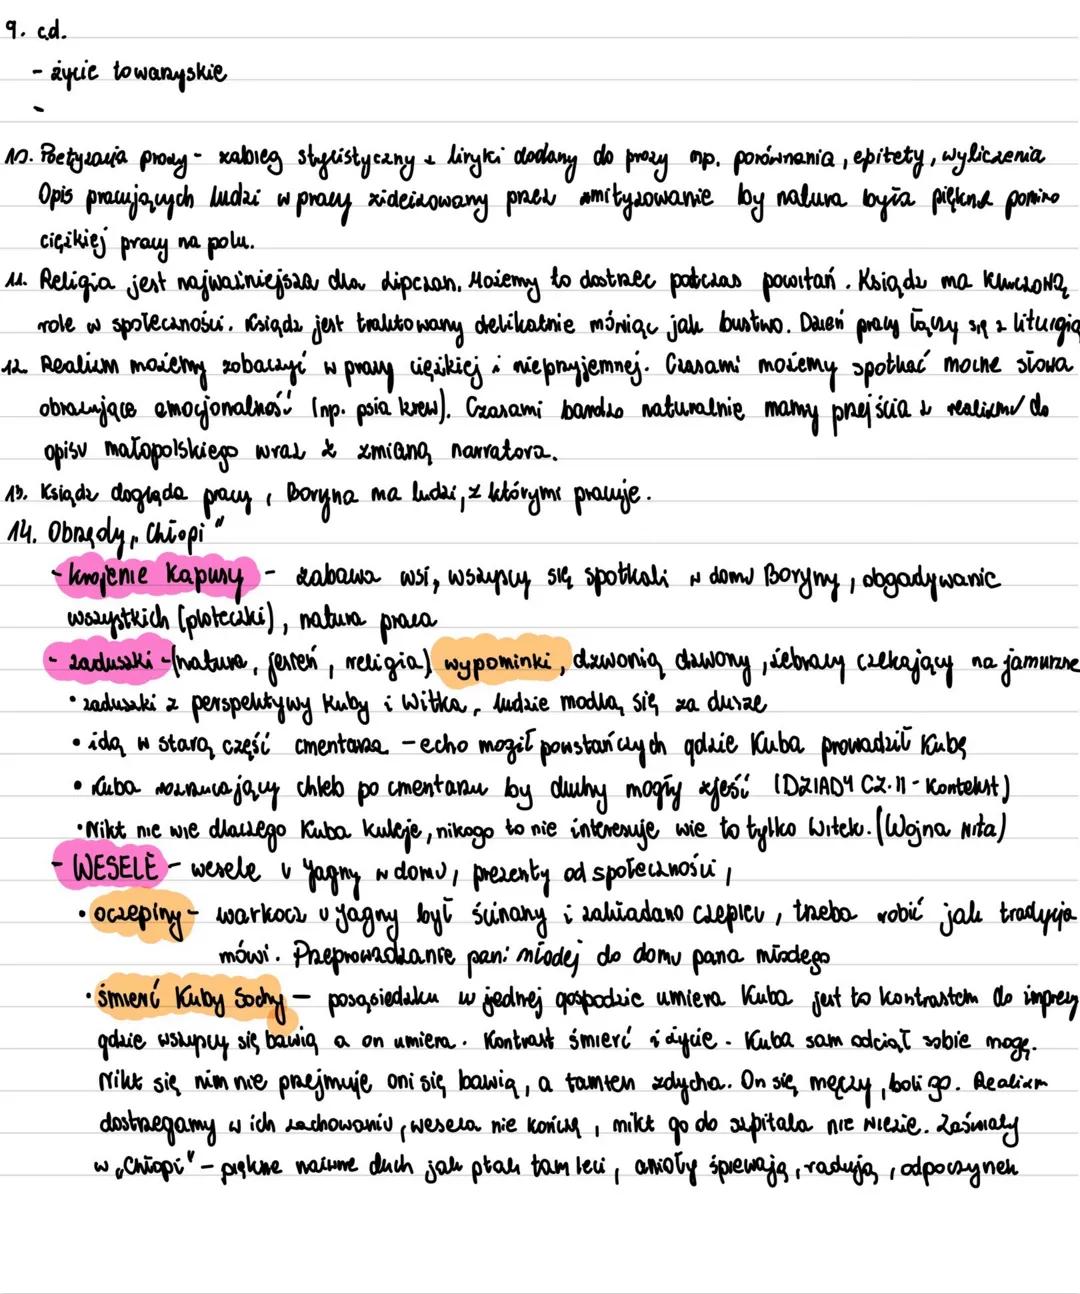 9. cd.
- życie towarzyskie
-
10. Poetyzacja prozy - zabieg stylistyczny z liryki dodany do prozy np. porównania, epitety, wyliczenia
Opis pracujących ludzi w pracy zideizowany przez zmityzowanie by natura była piękna pomimo
ciężkiej pracy na polu.
11. Religia jest najważniejsza dla lipczan. Możemy to dostrzec podczas powitań. Ksiądz ma kluczową
role w społeczności. Ksiądz jest traktowany delikatnie mówiąc jak bustwo. Dzień pracy łączy się z liturgią
12. Realizm możemy zobaczyć w pracy ciężkiej i nieprzyjemnej. Czasami możemy spotkać mocne słowa
obrazujące emocjonalność (np. psia krew). Czasami bardzo naturalnie mamy przejścia z realizmu do
opisu małopolskiego wraz z zmianą narratora.
13. Ksiądz dogląda pracy, Boryna ma ludzi, z którymi pracuje.
14. Obrzędy „Chłopi"
- krojenie kapusy - zabawa wsi, wszyscy się spotkali w domu Boryny, obgadywanie
wszystkich (ploteczki), natura praca
- zaduszki - (natura, jesień, religia) wypominki, dzwonią dzwony, żebracy czekający na jamużne
• zaduszki z perspektywy Kuby i Witka, ludzie modlą się za dusze
• idą w starą część cmentarza - echo mogił powstańczych gdzie Kuba prowadził Kubę
• Kuba rozrzucający chleb po cmentarzu by duchy mogły zjeść (DZIADY CZ. II - Kontekst)
• Nikt nie wie dlaczego Kuba kuleje, nikogo to nie interesuje wie to tylko Witek. (Wojna
- WESELE - wesele u Jagny w domu, prezenty od społeczności,
• oczepiny - warkocz u Jagny był ścinany i zakładano czepiec, trzeba robić jak tradycja
mówi. Przeprowadzanie pani młodej do domu pana młodego
• śmierć Kuby Sochy - po sąsiedzku w jednej gospodzie umiera Kuba jest to kontrastem do imprezy
gdzie wszyscy się bawią a on umiera. Kontrast śmierć i życie. Kuba sam odciął sobie nogę.
Nikt się nim nie przejmuje oni się bawią, a tamten zdycha. On się męczy, boli go. Realizm
dostrzegamy w ich zachowaniu, wesela nie kończą, nikt go do szpitala nie wiezie. Zaświaty
w „Chłopi" - piękne naiwne duch jak ptak tam leci, anioły śpiewają, radują, odpoczynek